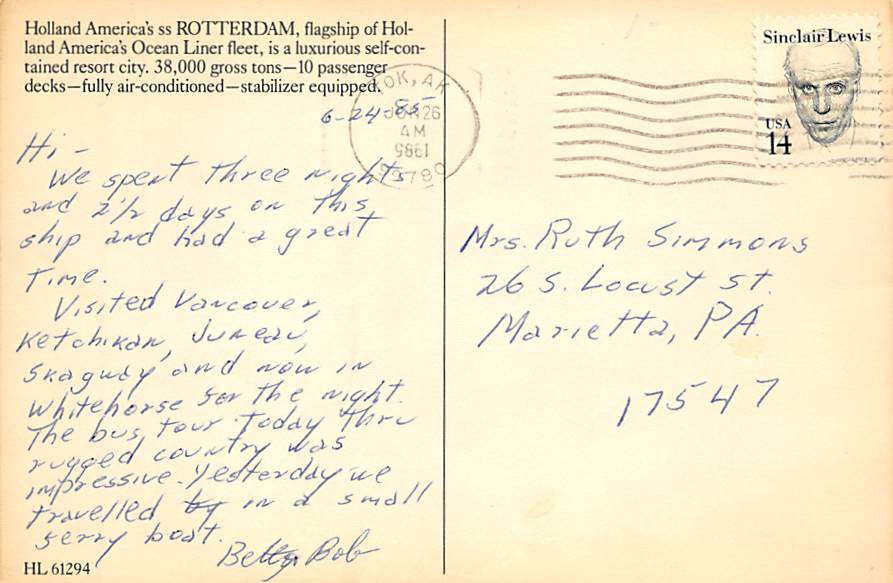 Holland America's ss ROTTERDAM, flagship of Hol-
land America's Ocean Liner fleet, is a luxurious self-con-
tained resort city. 38,000 gross tons—10 passenger
decks—fully air-conditioned—stabilizer equipped.
6-24-85
Hi -
We spent three nights
and 2 1/2 days on this
ship and had a great
time.
Visited Vancouver,
Ketchikan, Juneau,
Skagway and now in
Whitehorse for the night.
The bus tour today thru
rugged country was
impressive. Yesterday we
travelled by in a small
ferry boat.
Betty Bob
HL 61294
OK, AK
JUN 26
AM
1985
99780
Sinclair Lewis
USA
14
Mrs. Ruth Simmons
26 S. Locust St.
Marietta, PA.
17547